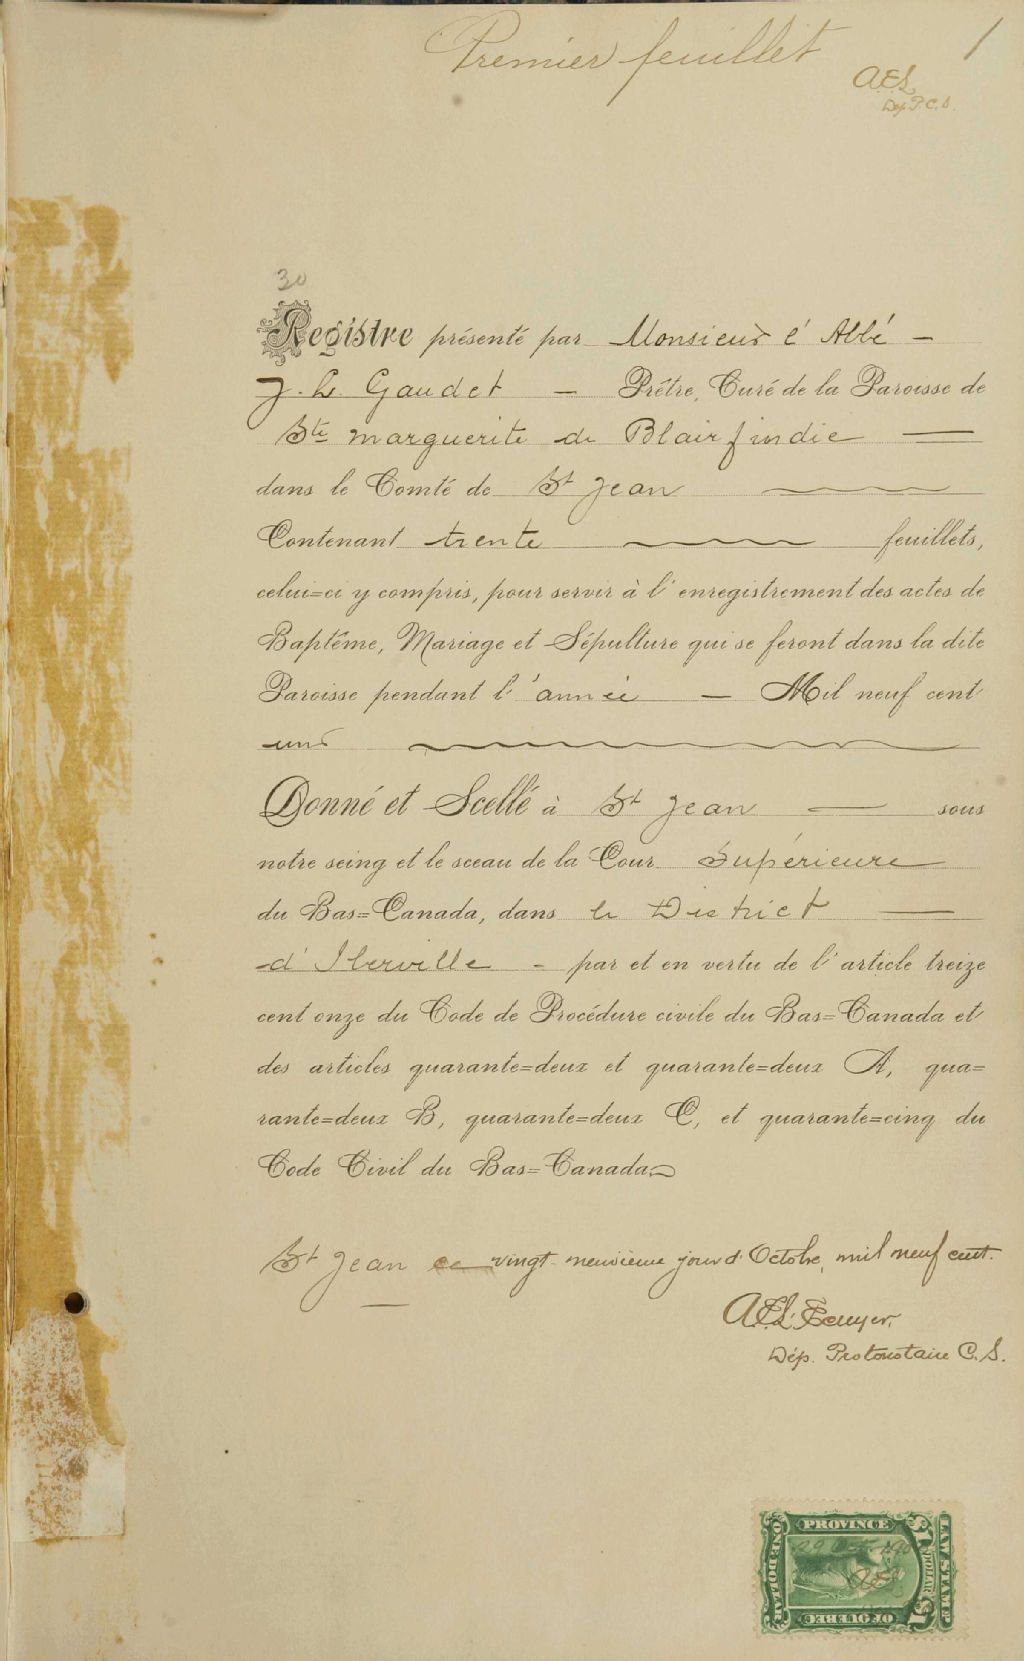 Premier feuillet 1
A.E.L
Dép P.C.S.
30
Registre présenté par Monsieur l'Abbé -
J. L. Gaudet - Prêtre, Curé de la Paroisse de
Ste Marguerite de Blairfindie
dans le Comté de St Jean
Contenant trente feuillets,
celui=ci y compris, pour servir à l'enregistrement des actes de
Baptême, Mariage et Sépulture qui se feront dans la dite
Paroisse pendant l'année - Mil neuf cent
un
Donné et Scellé à St Jean sous
notre seing et le sceau de la Cour Supérieure
du Bas=Canada, dans le District
d'Iberville - par et en vertu de l'article treize
cent onze du Code de Procédure civile du Bas=Canada et
des articles quarante=deux et quarante=deux A, qua=
rante=deux B, quarante=deux C, et quarante=cinq du
Code Civil du Bas=Canada
St Jean ce vingt neuvième jour d'Octobre, mil neuf cent.
A.E.L.
Dép. Protonotaire C.S.
PROVINCE
OF QUEBEC
ONE DOLLAR
LAW STAMP
$1 DOLLAR $1
29